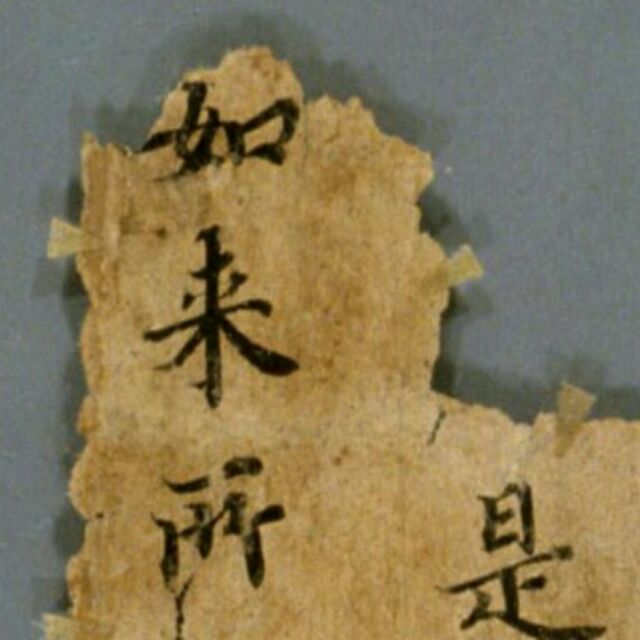 是
如来所